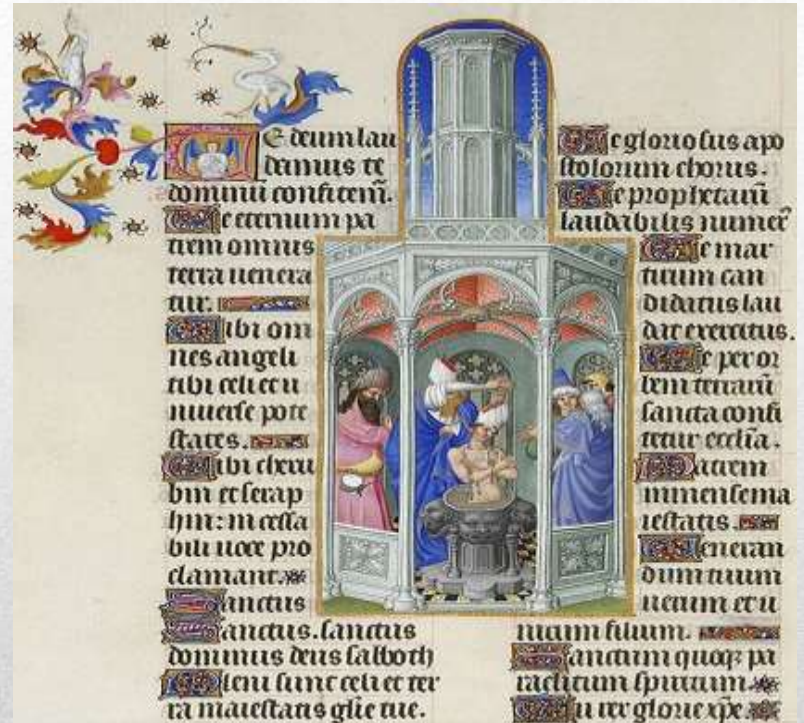 Te deum lau
damus te
dominū confitem̄.
Te eternum pa
trem omnis
terra uenera
tur.
Tibi om
nes angeli
tibi celi et u
niuerse pote
states.
Tibi cheru
bin et serap
hin: incessa
bili uoce pro
clamant.
Sanctus
Sanctus. sanctus
dominus deus sabboth
Pleni sunt celi et ter
ra maiestatis glīe tue.
Te gloriosus apo
stolorum chorus.
Te prophetarū
laudabilis numer̄
Te mar
tirum can
didatus lau
dat exercitus.
Te per or
bem terrarū
sancta confi
tetur ecclīa.
Patrem
immense ma
iestatis.
Veneran
dum tuum
uerum et u
nicum filium.
Sanctum quoqꝫ pa
raclitum spiritum.
Tu rex glorie xp̄e.